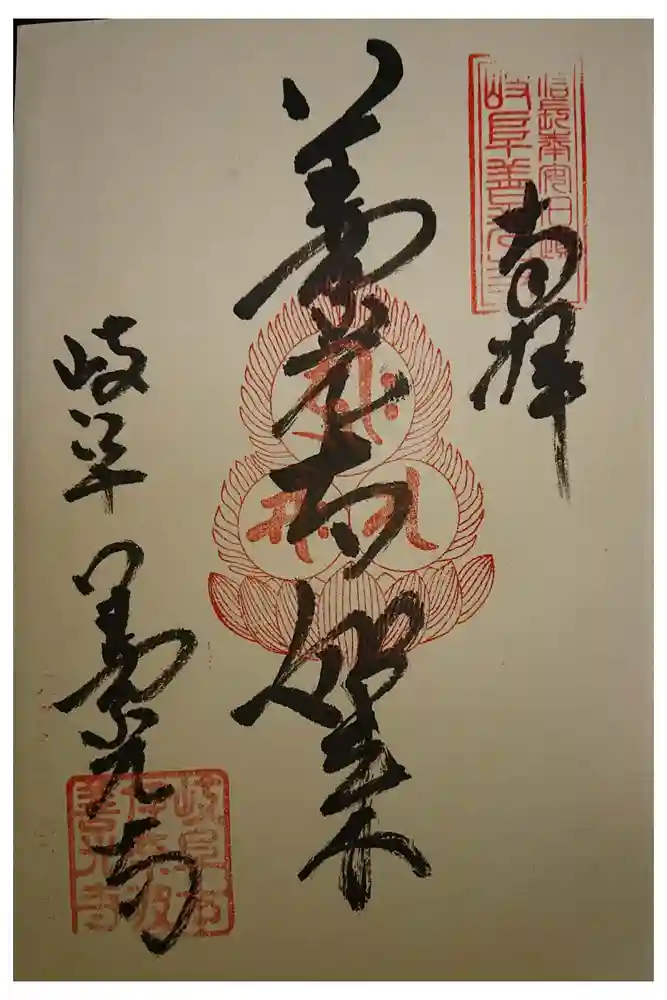 信長奉安旧蹟
岐阜善光寺
奉拝
善光寺如来
岐阜 善光寺
岐阜市
伊奈波
善光寺